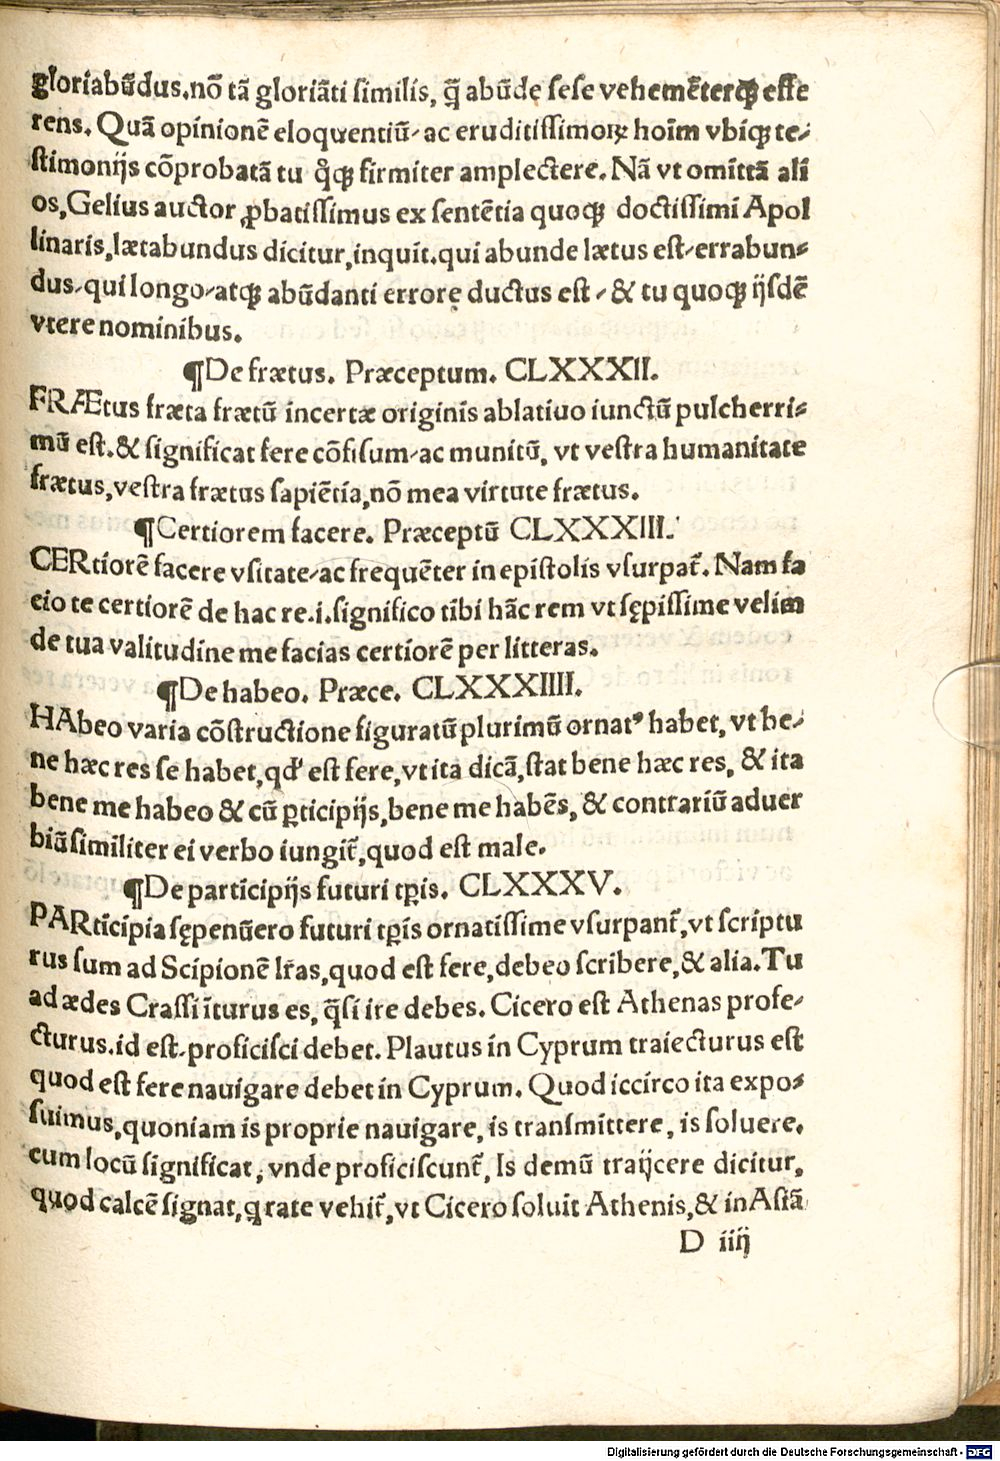 gloriabūdus.nō tā gloriāti similis, q̄ abūdę sese vehemēterqꝫ effe
rens. Quā opinionē eloquentiū ac eruditissimoꝝ hoīm vbiqꝫ te-
stimonijs cōprobatā tu q̊qꝫ firmiter amplectere. Nā vt omittā ali
os, Gelius auctor ꝓbatissimus ex sentētia quoqꝫ doctissimi Apol
linaris, lætabundus dicitur, inquit. qui abunde lætus est errabun-
dus qui longo atqꝫ abūdanti errorę ductus est & tu quoqꝫ ijsdē
vtere nominibus.
¶De frætus. Præceptum. CLXXXII.
FRÆtus fræta frætū incertæ originis ablatiuo iunctū pulcherri-
mū est. & significat fere cōfisum ac munitū, vt vestra humanitate
frætus, vestra frætus sapiētia, nō mea virtute frætus.
¶Certiorem facere. Præceptū CLXXXIII.
CERtiorē facere vsitate ac frequēter in epistolis vsurpat̄. Nam fa
cio te certiorē de hac re .i. significo tibi hāc rem vt sępissime velim
de tua valitudine me facias certiorē per litteras.
¶De habeo. Præce. CLXXXIIII.
HAbeo varia cōstructione figuratū plurimū ornatꝰ habet, vt be-
ne hæc res se habet, qd' est fere, vt ita dicā, stat bene hæc res, & ita
bene me habeo & cū ꝑticipijs, bene me habēs, & contrariū aduer
biū similiter ei verbo iungit̄, quod est male.
¶De participijs futuri tꝑis. CLXXXV.
PARticipia sępenūero futuri tꝑis ornatissime vsurpant̄, vt scriptu
rus sum ad Scipionē lr̄as, quod est fere, debeo scribere, & alia. Tu
ad ædes Crassi īturus es, q̄si ire debes. Cicero est Athenas profe-
cturus. id est proficisci debet. Plautus in Cyprum traiecturus est
quod est fere nauigare debet in Cyprum. Quod iccirco ita expo-
suimus, quoniam is proprie nauigare, is transmittere, is soluere,
cum locū significat, vnde proficiscunt̄, Is demū traijcere dicitur,
quod calcē signat, q rate vehit̄, vt Cicero soluit Athenis, & in Asiā
D iiij
Digitalisierung gefördert durch die Deutsche Forschungsgemeinschaft - DFG